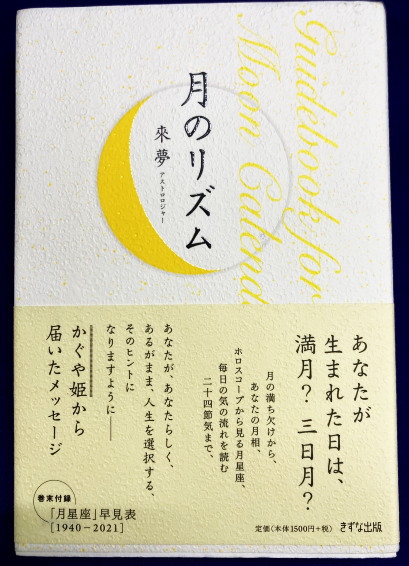 Guidebook for
Moon Calend
月のリズム
來夢
アストロロジャー
あなたが
生まれた日は、
満月？ 三日月？
月の満ち欠けから、
あなたの月相、
ホロスコープから見る月星座、
毎日の気の流れを読む
二十四節気まで、
あなたが、あなたらしく、
あるがまま、人生を選択する、
そのヒントに
なりますように——
かぐや姫から
届いたメッセージ
巻末付録
「月星座」早見表
[1940－2021]
定価（本体1500円+税）
きずな出版